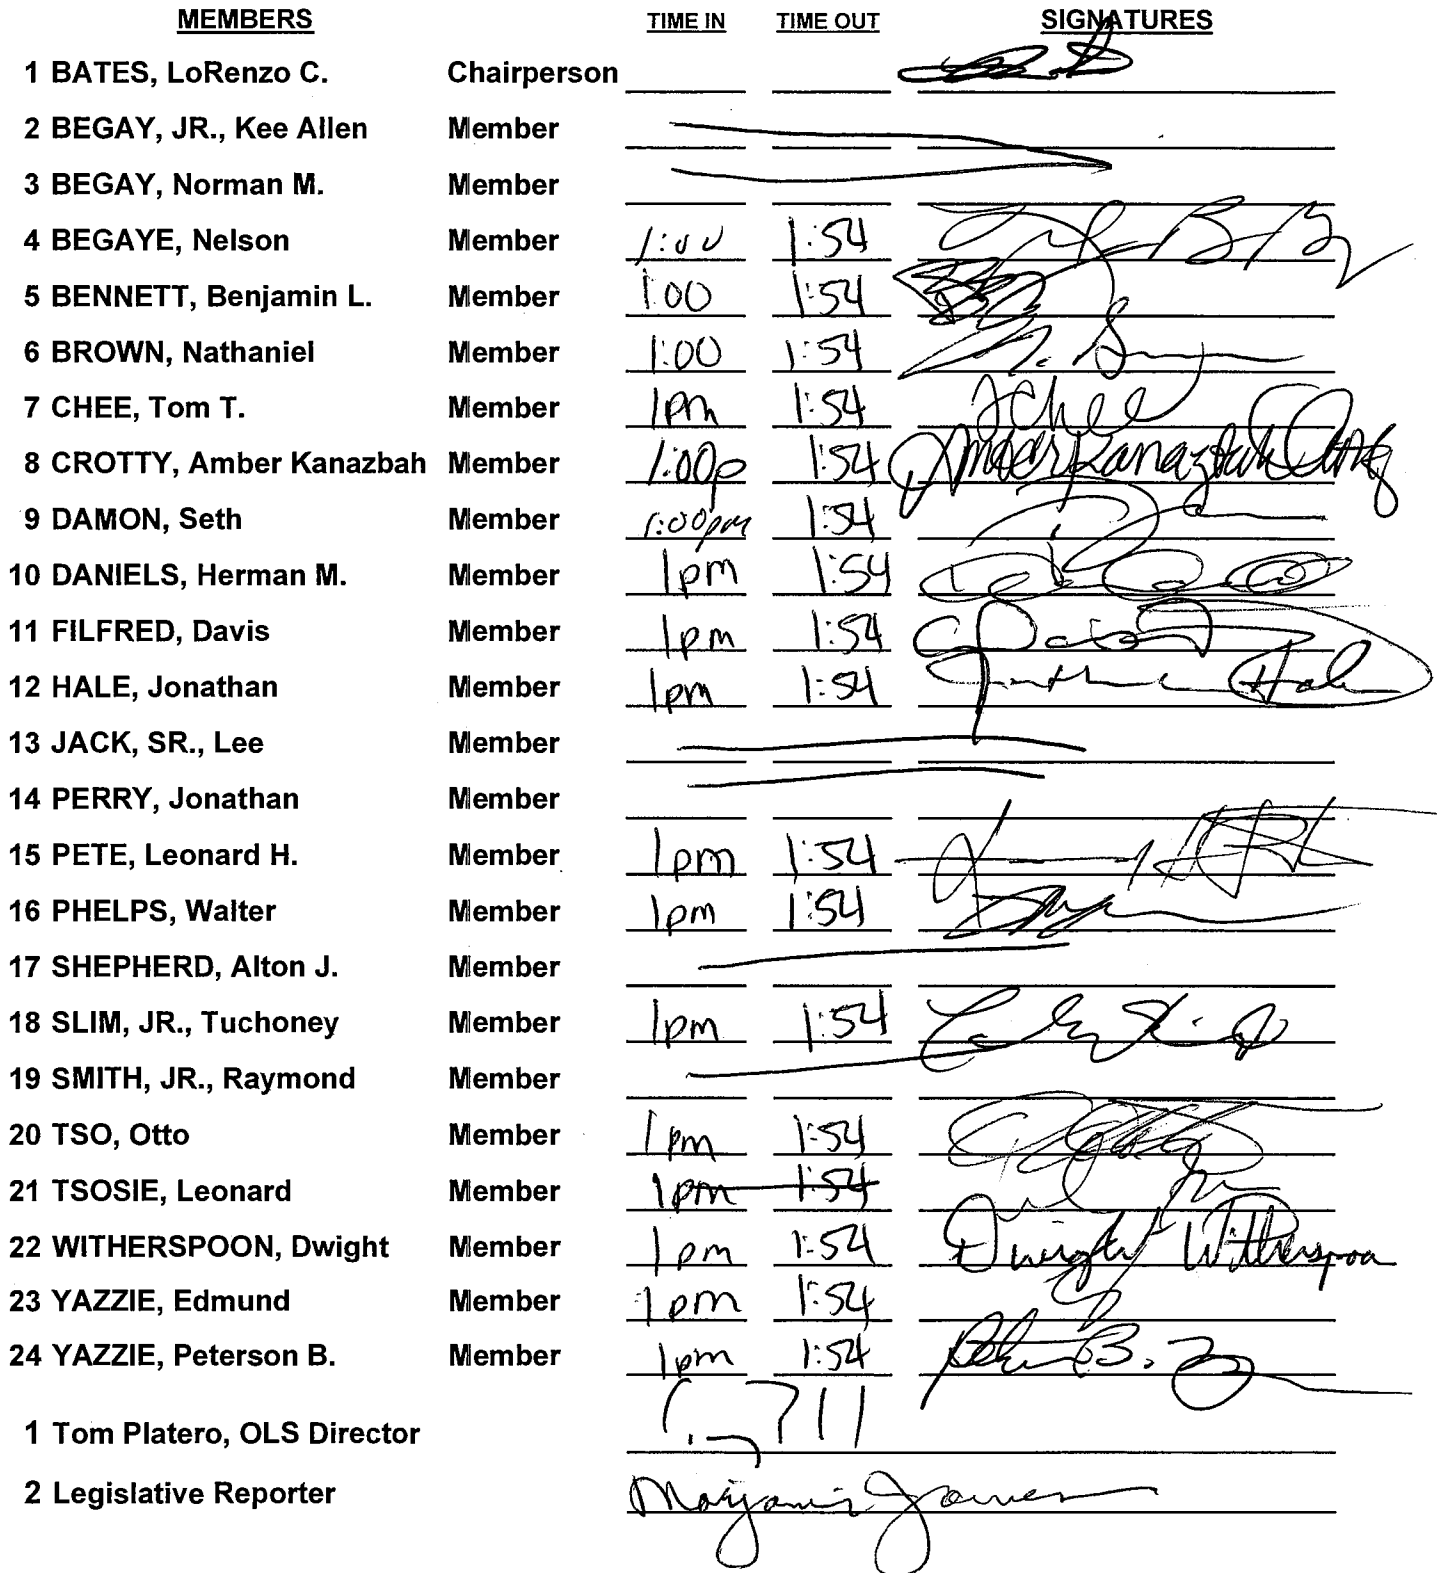 MEMBERS TIME IN TIME OUT SIGNATURES
1 BATES, LoRenzo C. Chairperson
2 BEGAY, JR., Kee Allen Member
3 BEGAY, Norman M. Member
4 BEGAYE, Nelson Member 1:00 1:54
5 BENNETT, Benjamin L. Member 1:00 1:54
6 BROWN, Nathaniel Member 1:00 1:54
7 CHEE, Tom T. Member 1pm 1:54 TChee
8 CROTTY, Amber Kanazbah Member 1:00p 1:54 Amber Kanazbah Crotty
9 DAMON, Seth Member 1:00pm 1:54
10 DANIELS, Herman M. Member 1pm 1:54
11 FILFRED, Davis Member 1pm 1:54
12 HALE, Jonathan Member 1pm 1:54 Jonathan Hale
13 JACK, SR., Lee Member
14 PERRY, Jonathan Member
15 PETE, Leonard H. Member 1pm 1:54
16 PHELPS, Walter Member 1pm 1:54
17 SHEPHERD, Alton J. Member
18 SLIM, JR., Tuchoney Member 1pm 1:54
19 SMITH, JR., Raymond Member
20 TSO, Otto Member 1pm 1:54
21 TSOSIE, Leonard Member 1pm 1:54
22 WITHERSPOON, Dwight Member 1pm 1:54 Dwight Witherspoon
23 YAZZIE, Edmund Member 1pm 1:54
24 YAZZIE, Peterson B. Member 1pm 1:54
1 Tom Platero, OLS Director
2 Legislative Reporter